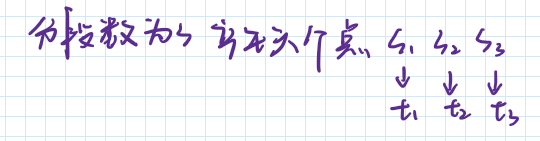 分段数为5 前三个点 S₁ S₂ S₃
↓ ↓ ↓
t₁ t₂ t₃